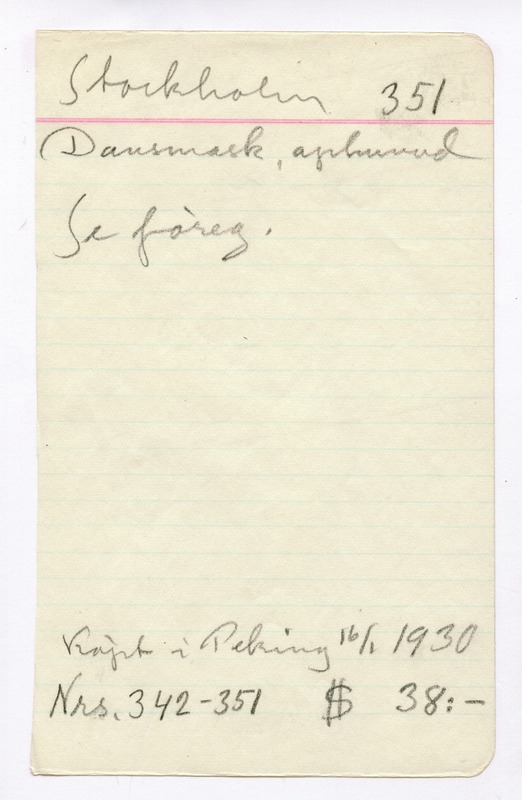 Stockholm 351
Dansmask, aphuvud
Se föreg.
Köpt i Peking 16/1 1930
Nrs. 342-351 $ 38:-